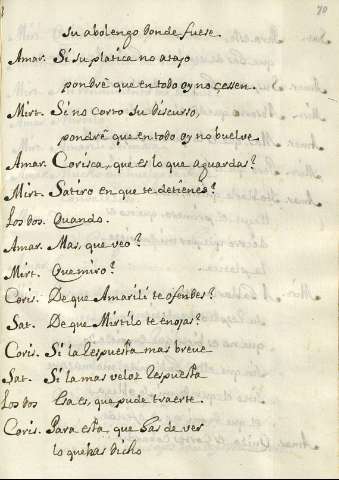 70
su abolengo donde fuese.
Amar. Si su platica no atajo
pondrè que en todo oy no cessen.
Mirt. Si no corto su discurso,
pondrè que en todo oy no buelve.
Amar. Corisca, que es lo que aguardas?
Mirt. Satiro en que te detienes?
Los dos. Quando.
Amar. Mas, que veo?
Mirt. Que miro?
Coris. De que Amarili te ofendes?
Sat. De que Mirtilo te enojas?
Coris. Si la respuesta mas breve
Sat. Si la mas veloz respuesta
Los dos Era es, que pude traerte.
Coris. Para esta, que has de ver
lo que has dicho